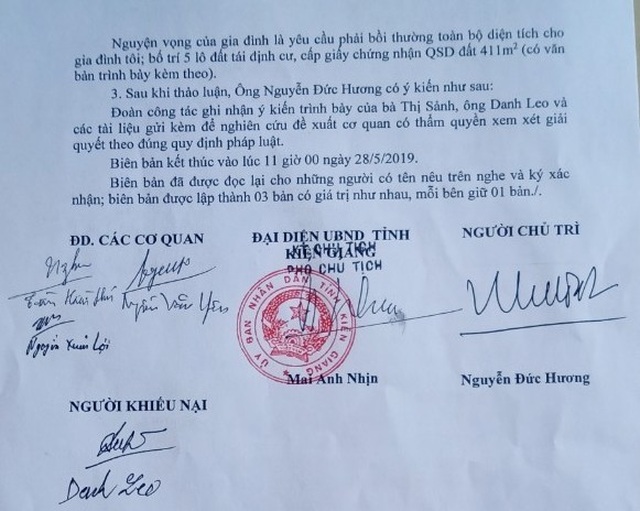 Nguyện vọng của gia đình là yêu cầu phải bồi thường toàn bộ diện tích cho
gia đình tôi; bố trí 5 lô đất tái định cư, cấp giấy chứng nhận QSD đất 411m² (có văn
bản trình bày kèm theo).
3. Sau khi thảo luận, Ông Nguyễn Đức Hương có ý kiến như sau:
Đoàn công tác ghi nhận ý kiến trình bày của bà Thị Sảnh, ông Danh Leo và
các tài liệu gửi kèm để nghiên cứu đề xuất cơ quan có thẩm quyền xem xét giải
quyết theo đúng quy định pháp luật.
Biên bản kết thúc vào lúc 11 giờ 00 ngày 28/5/2019.
Biên bản đã được đọc lại cho những người có tên nêu trên nghe và ký xác
nhận; biên bản được lập thành 03 bản có giá trị như nhau, mỗi bên giữ 01 bản./.
ĐD. CÁC CƠ QUAN
ĐẠI DIỆN UBND TỈNH
KIÊN GIANG
KT. CHỦ TỊCH
PHÓ CHỦ TỊCH
NGƯỜI CHỦ TRÌ
Nguyễn Văn Yên
Nguyễn Xuân Lội
ỦY BAN NHÂN DÂN TỈNH KIÊN GIANG
Mai Anh Nhịn
Nguyễn Đức Hương
NGƯỜI KHIẾU NẠI
Danh Leo